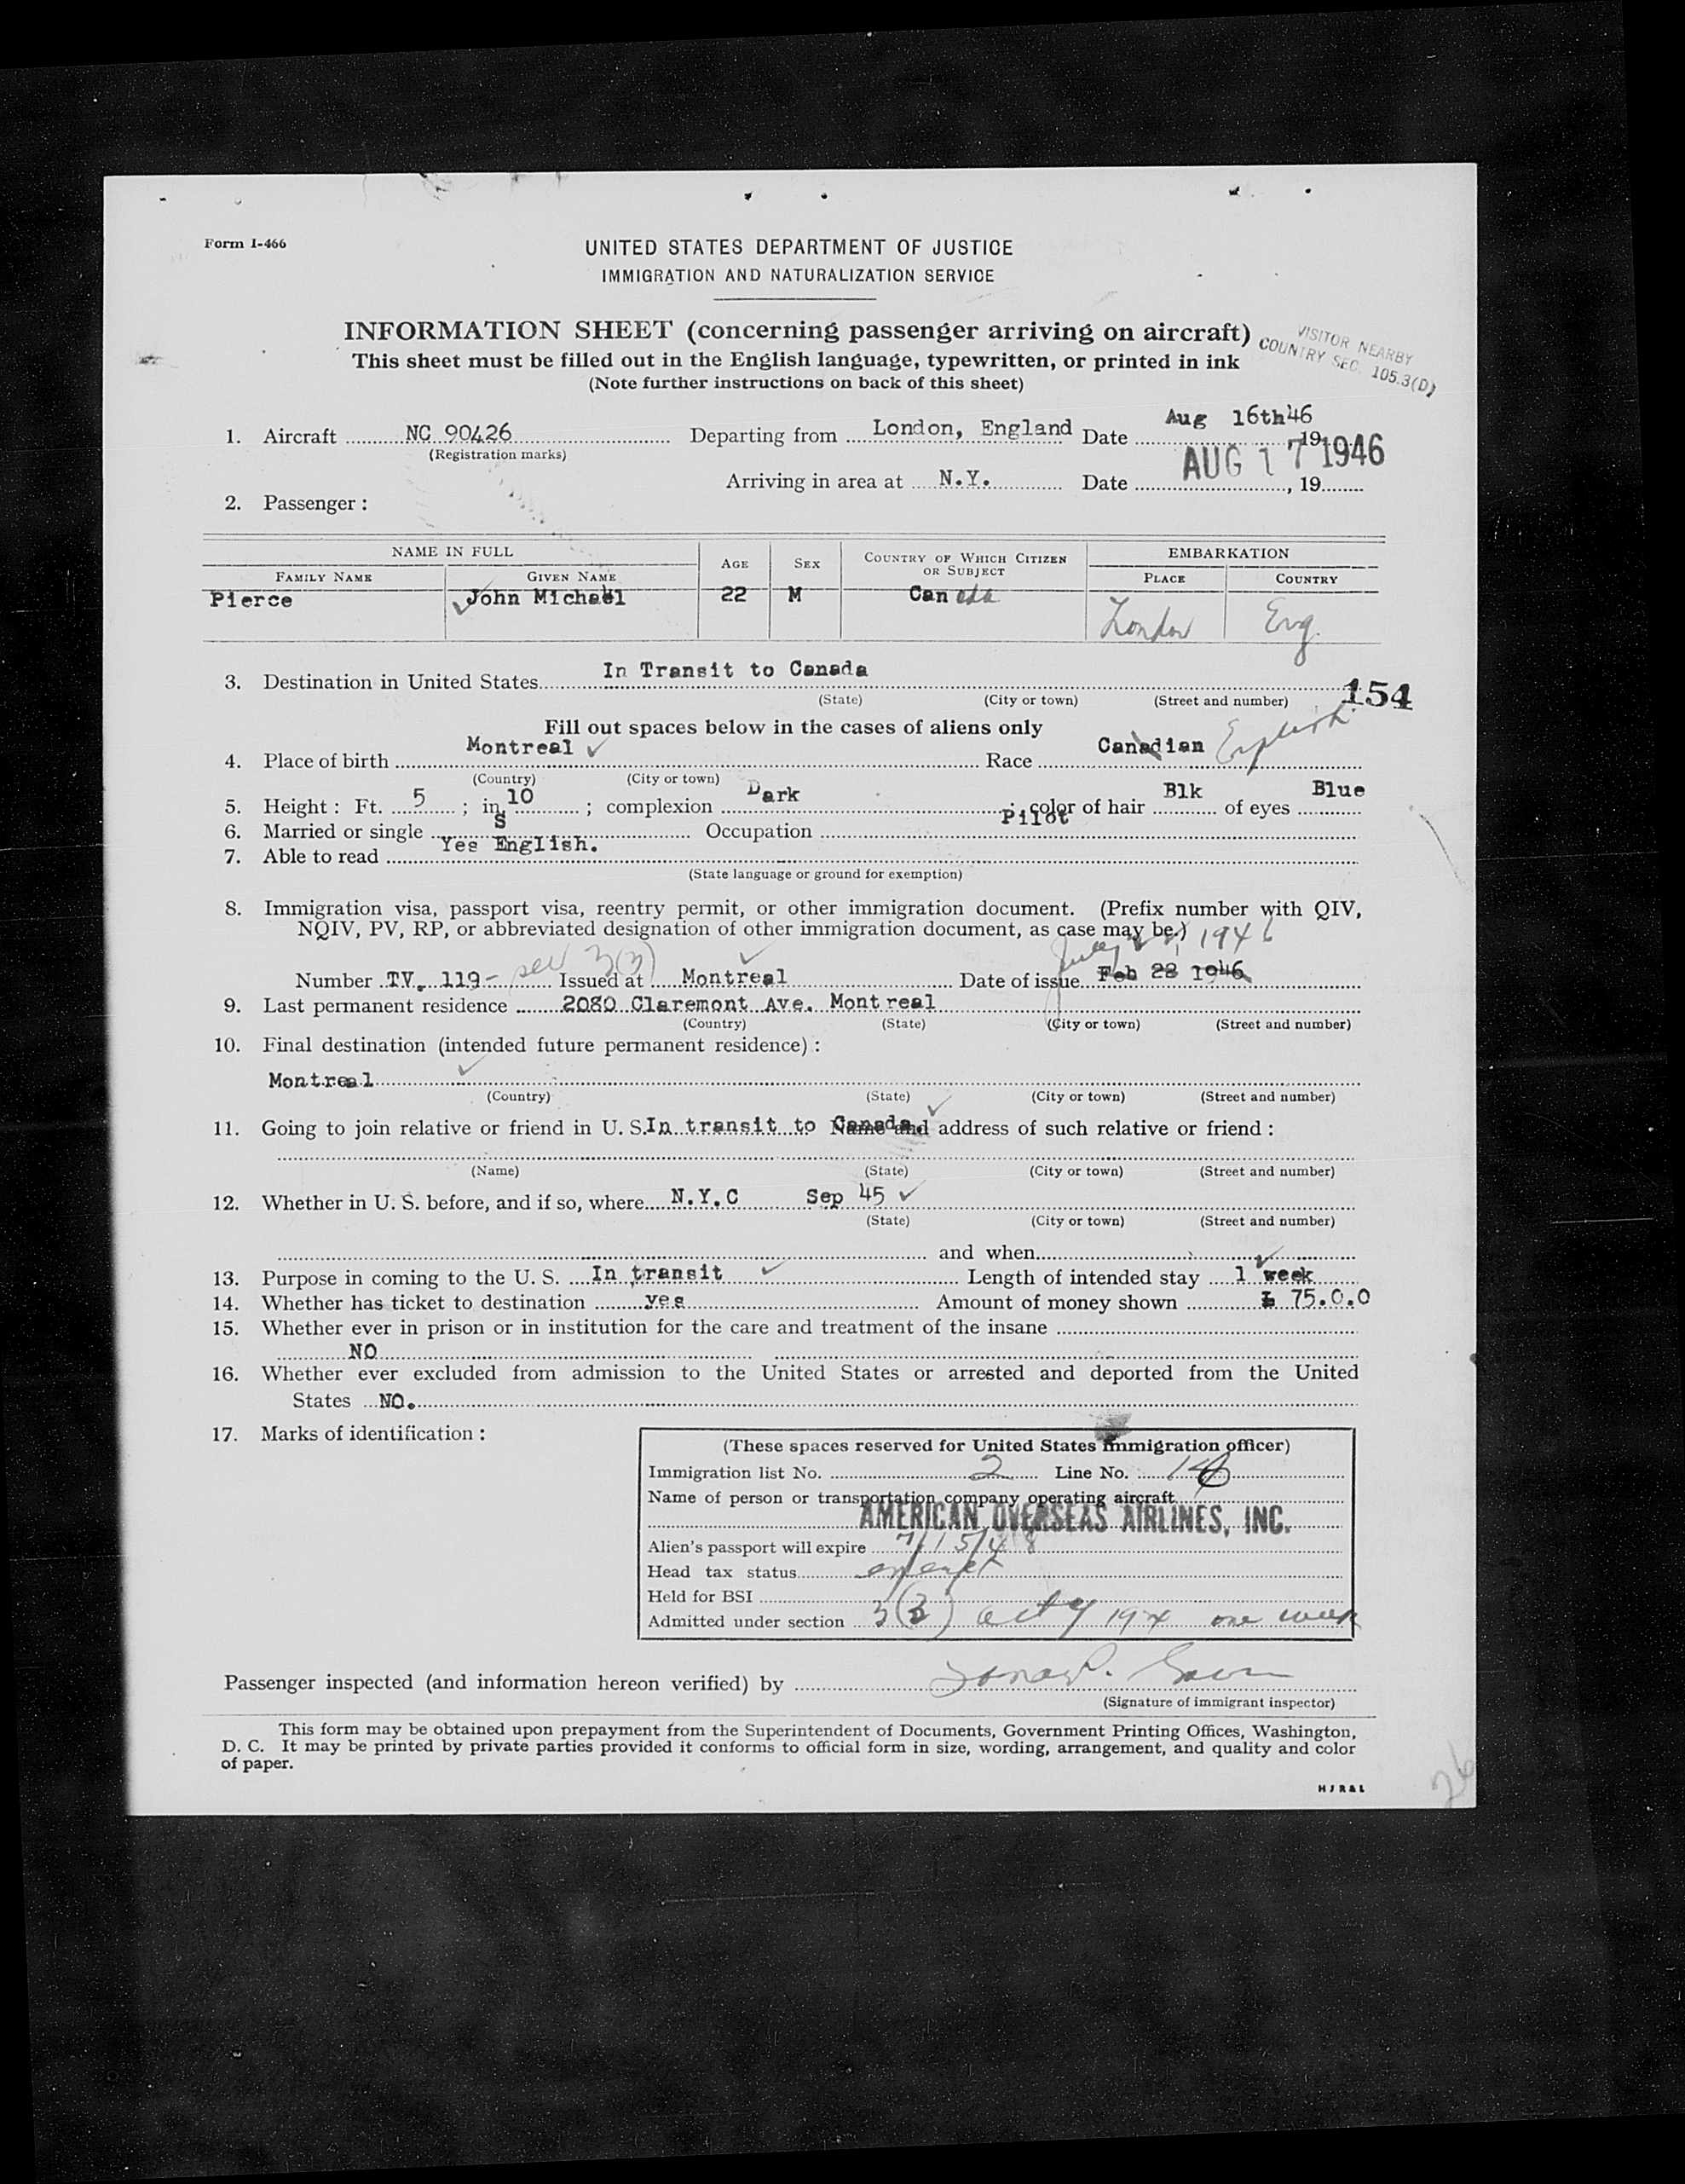 Form I-466
UNITED STATES DEPARTMENT OF JUSTICE
IMMIGRATION AND NATURALIZATION SERVICE
INFORMATION SHEET (concerning passenger arriving on aircraft)
VISITOR NEARBY
COUNTRY SEC. 105.3(D)
This sheet must be filled out in the English language, typewritten, or printed in ink
(Note further instructions on back of this sheet)
1. Aircraft NC 90426 Departing from London, England Date Aug 16th 46 19
(Registration marks)
Arriving in area at N.Y. Date AUG 17 1946, 19
2. Passenger:
NAME IN FULL AGE SEX COUNTRY OF WHICH CITIZEN OR SUBJECT EMBARKATION
FAMILY NAME GIVEN NAME PLACE COUNTRY
Pierce John Michael 22 M Canada London Eng.
3. Destination in United States In Transit to Canada
(State) (City or town) (Street and number) 154
Fill out spaces below in the cases of aliens only
4. Place of birth Montreal Race Canadian English
(Country) (City or town)
5. Height: Ft. 5; in. 10; complexion Dark; color of hair Blk of eyes Blue
6. Married or single S Occupation Pilot
7. Able to read Yes English.
(State language or ground for exemption)
8. Immigration visa, passport visa, reentry permit, or other immigration document. (Prefix number with QIV,
NQIV, PV, RP, or abbreviated designation of other immigration document, as case may be.)
1946
Number TV. 119- sec 3(3) Issued at Montreal Date of issue Feb 28 1946
9. Last permanent residence 2080 Claremont Ave. Montreal
(Country) (State) (City or town) (Street and number)
10. Final destination (intended future permanent residence):
Montreal
(Country) (State) (City or town) (Street and number)
11. Going to join relative or friend in U. S. In transit to Canada. Name and address of such relative or friend:
(Name) (State) (City or town) (Street and number)
12. Whether in U. S. before, and if so, where N.Y.C Sep 45
(State) (City or town) (Street and number)
and when
13. Purpose in coming to the U. S. In transit Length of intended stay 1 week
14. Whether has ticket to destination yes Amount of money shown £ 75.0.0
15. Whether ever in prison or in institution for the care and treatment of the insane
NO
16. Whether ever excluded from admission to the United States or arrested and deported from the United
States NO.
17. Marks of identification:
(These spaces reserved for United States immigration officer)
Immigration list No. 2 Line No. 
Name of person or transportation company operating aircraft
AMERICAN OVERSEAS AIRLINES, INC.
Alien's passport will expire 7/15/48
Head tax status exempt
Held for BSI
Admitted under section 3(3) act of 1924 one week
Passenger inspected (and information hereon verified) by
(Signature of immigrant inspector)
This form may be obtained upon prepayment from the Superintendent of Documents, Government Printing Offices, Washington,
D. C. It may be printed by private parties provided it conforms to official form in size, wording, arrangement, and quality and color
of paper.
HJR&L
26